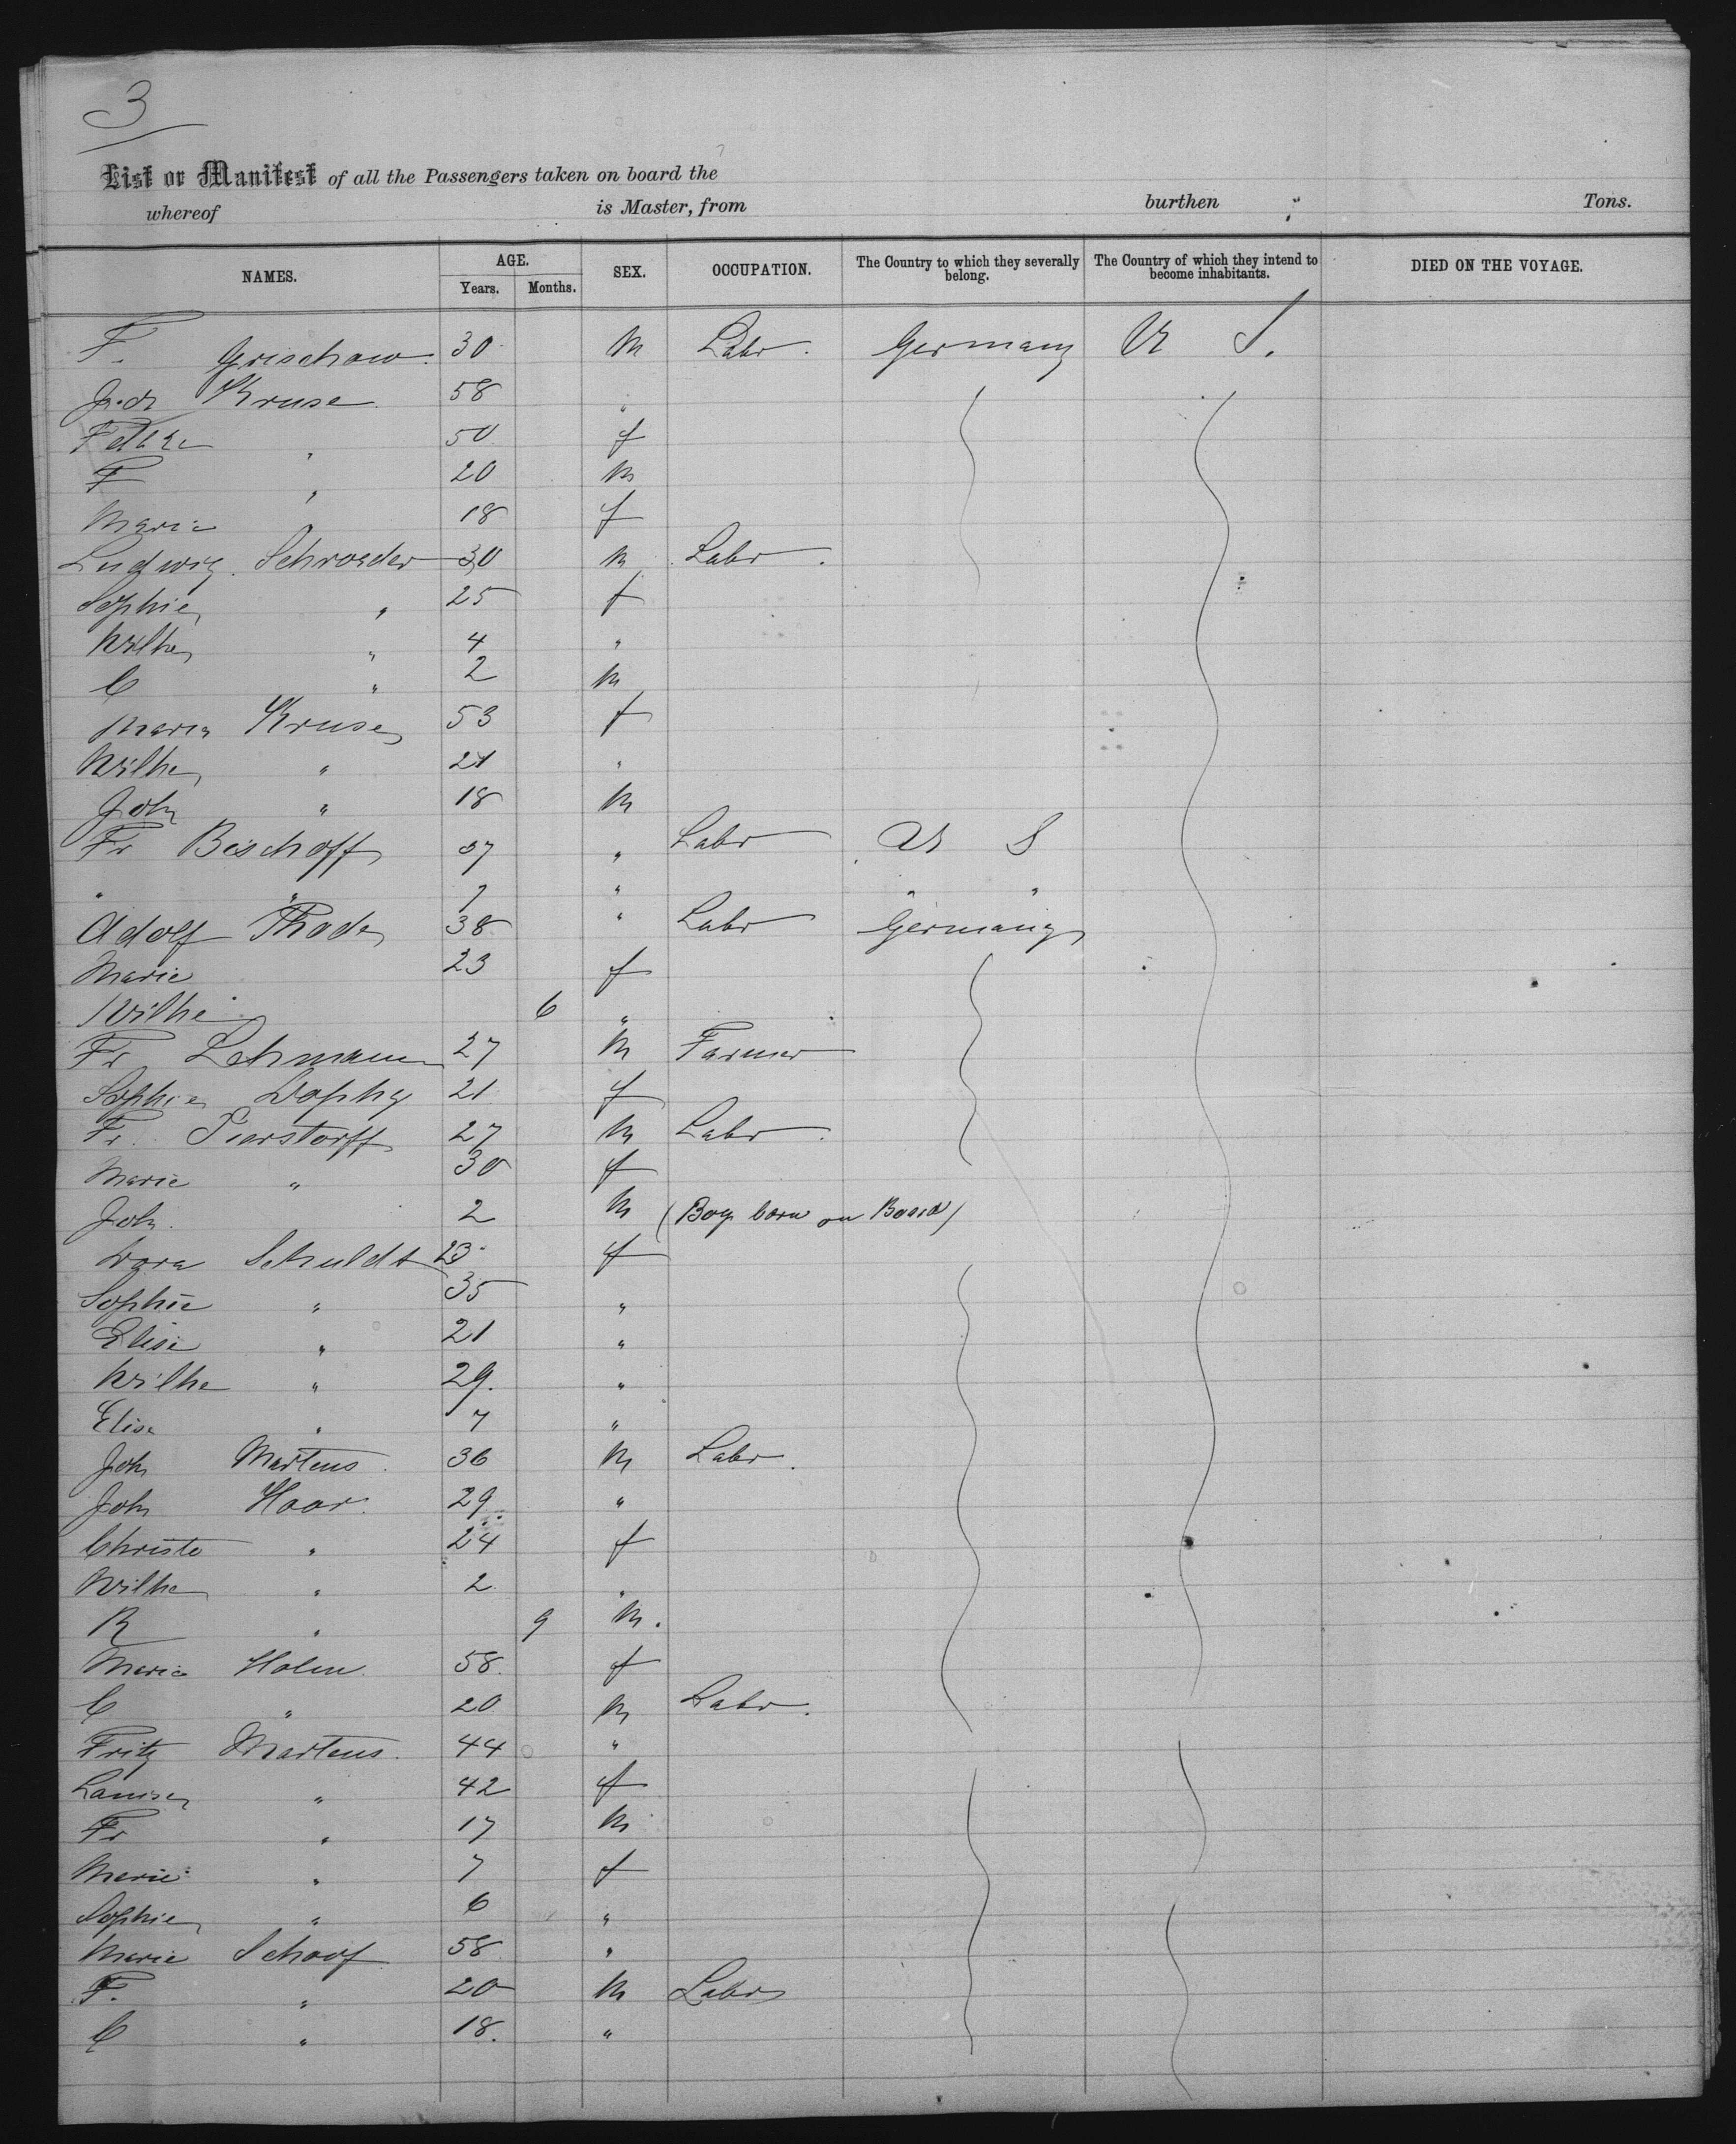 3
List or Manifest of all the Passengers taken on board the
whereof is Master, from burthen Tons.
NAMES. AGE. SEX. OCCUPATION. The Country to which they severally belong. The Country of which they intend to become inhabitants. DIED ON THE VOYAGE.
Years. Months.
F. Grischow. 30 m Labr. Germany U S.
Kruse 58 "
" 50 f
F " 20 m
Maria " 18 f
Ludwig Schroeder 30 m Labr.
Sophie " 25 f
Wilhe " 4 "
C " 2 m
Maria Kruse 53 f
Wilhe " 21 "
Joh " 18 m
Fr Bischoff 37 " Labr U S
" " 7 " " "
Adolf Thode 38 " Labr Germany
Marie 23 f
Wilhe 6 "
Fr Lehmann 27 m Farmer
Sophie 21 f
Fr. Pierstorff 27 m Labr.
Marie " 30 f
Joh. 2 m (Boy born on Board)
Dora Schuldt 23 f
Sophie " 35 "
Elise " 21 "
Wilhe " 29. "
Elise " 7 "
Joh Martens. 36 m Labr.
Joh Haar. 29 "
Christe " 24 f
Wilhe " 2 "
R " 9 m.
Maria Holm. 58. f
C " 20 m Labr.
Fritz Martens. 44 "
Louise " 42 f
Fr " 17 m
Marie " 7 f
Sophie " 6 "
Marie Schoof 58 "
F. " 20 m Labr
C " 18. "